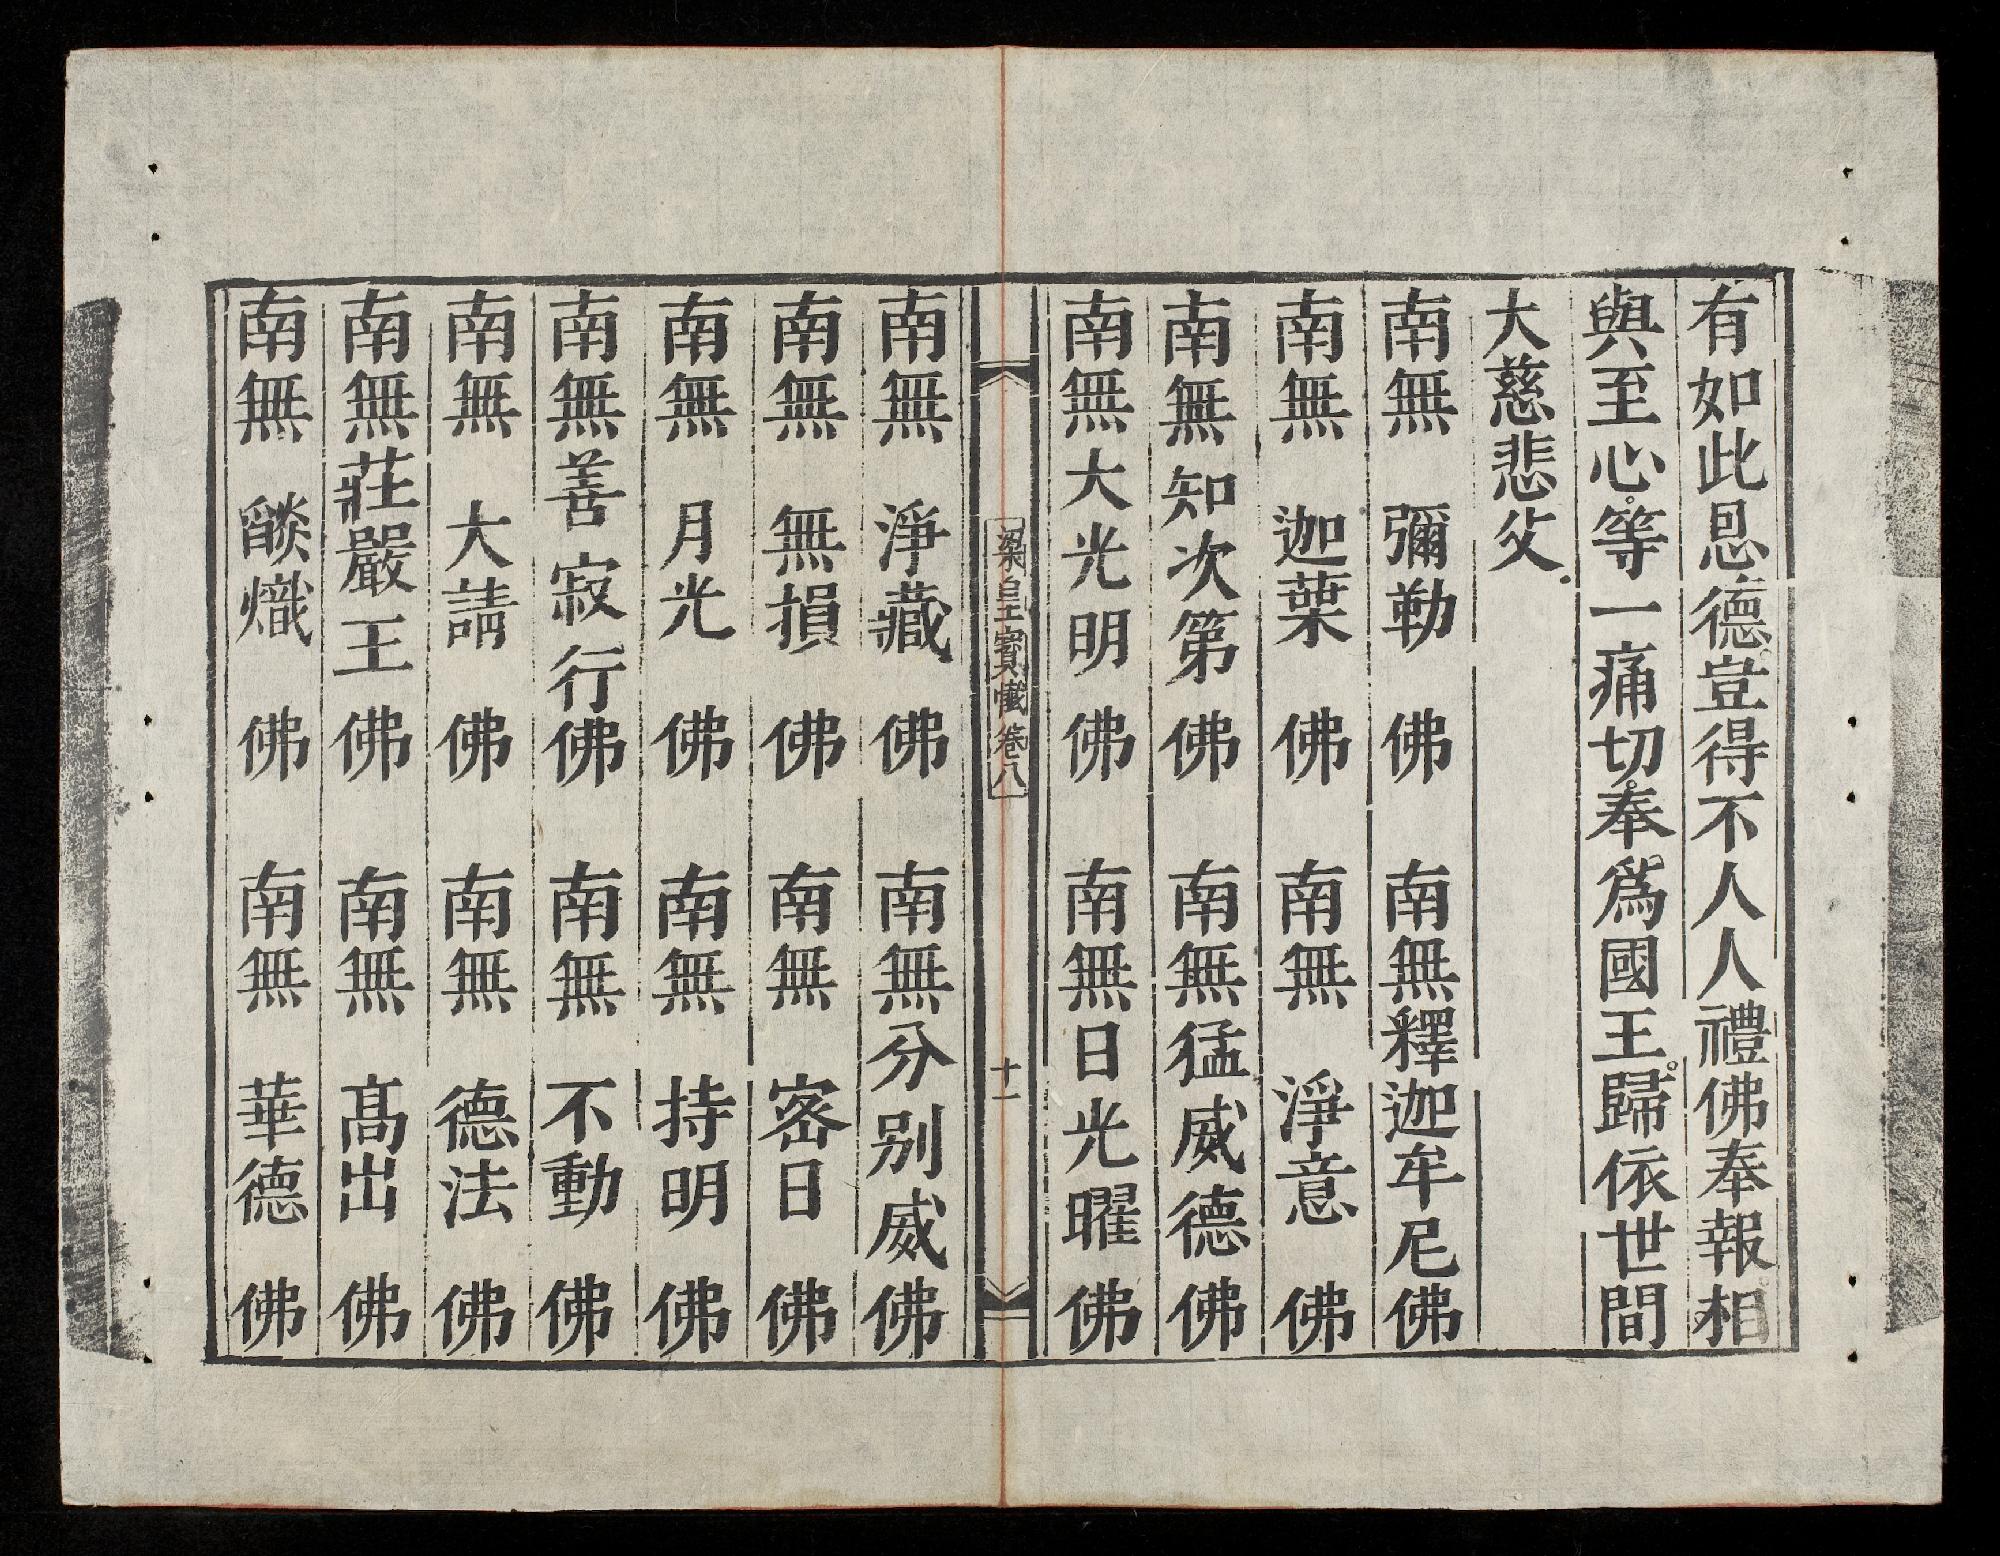 有如此恩德豈得不人人禮佛奉報相
與至心等一痛切奉爲國王歸依世間
大慈悲父
南無彌勒佛 南無釋迦牟尼佛
南無迦葉佛 南無淨意佛
南無知次第佛 南無猛威德佛
南無大光明佛 南無日光曜佛
梁皇寶懺卷八 十一
南無淨藏佛 南無分別威佛
南無無損佛 南無密日佛
南無月光佛 南無持明佛
南無善寂行佛 南無不動佛
南無大請佛 南無德法佛
南無莊嚴王佛 南無高出佛
南無燄熾佛 南無華德佛